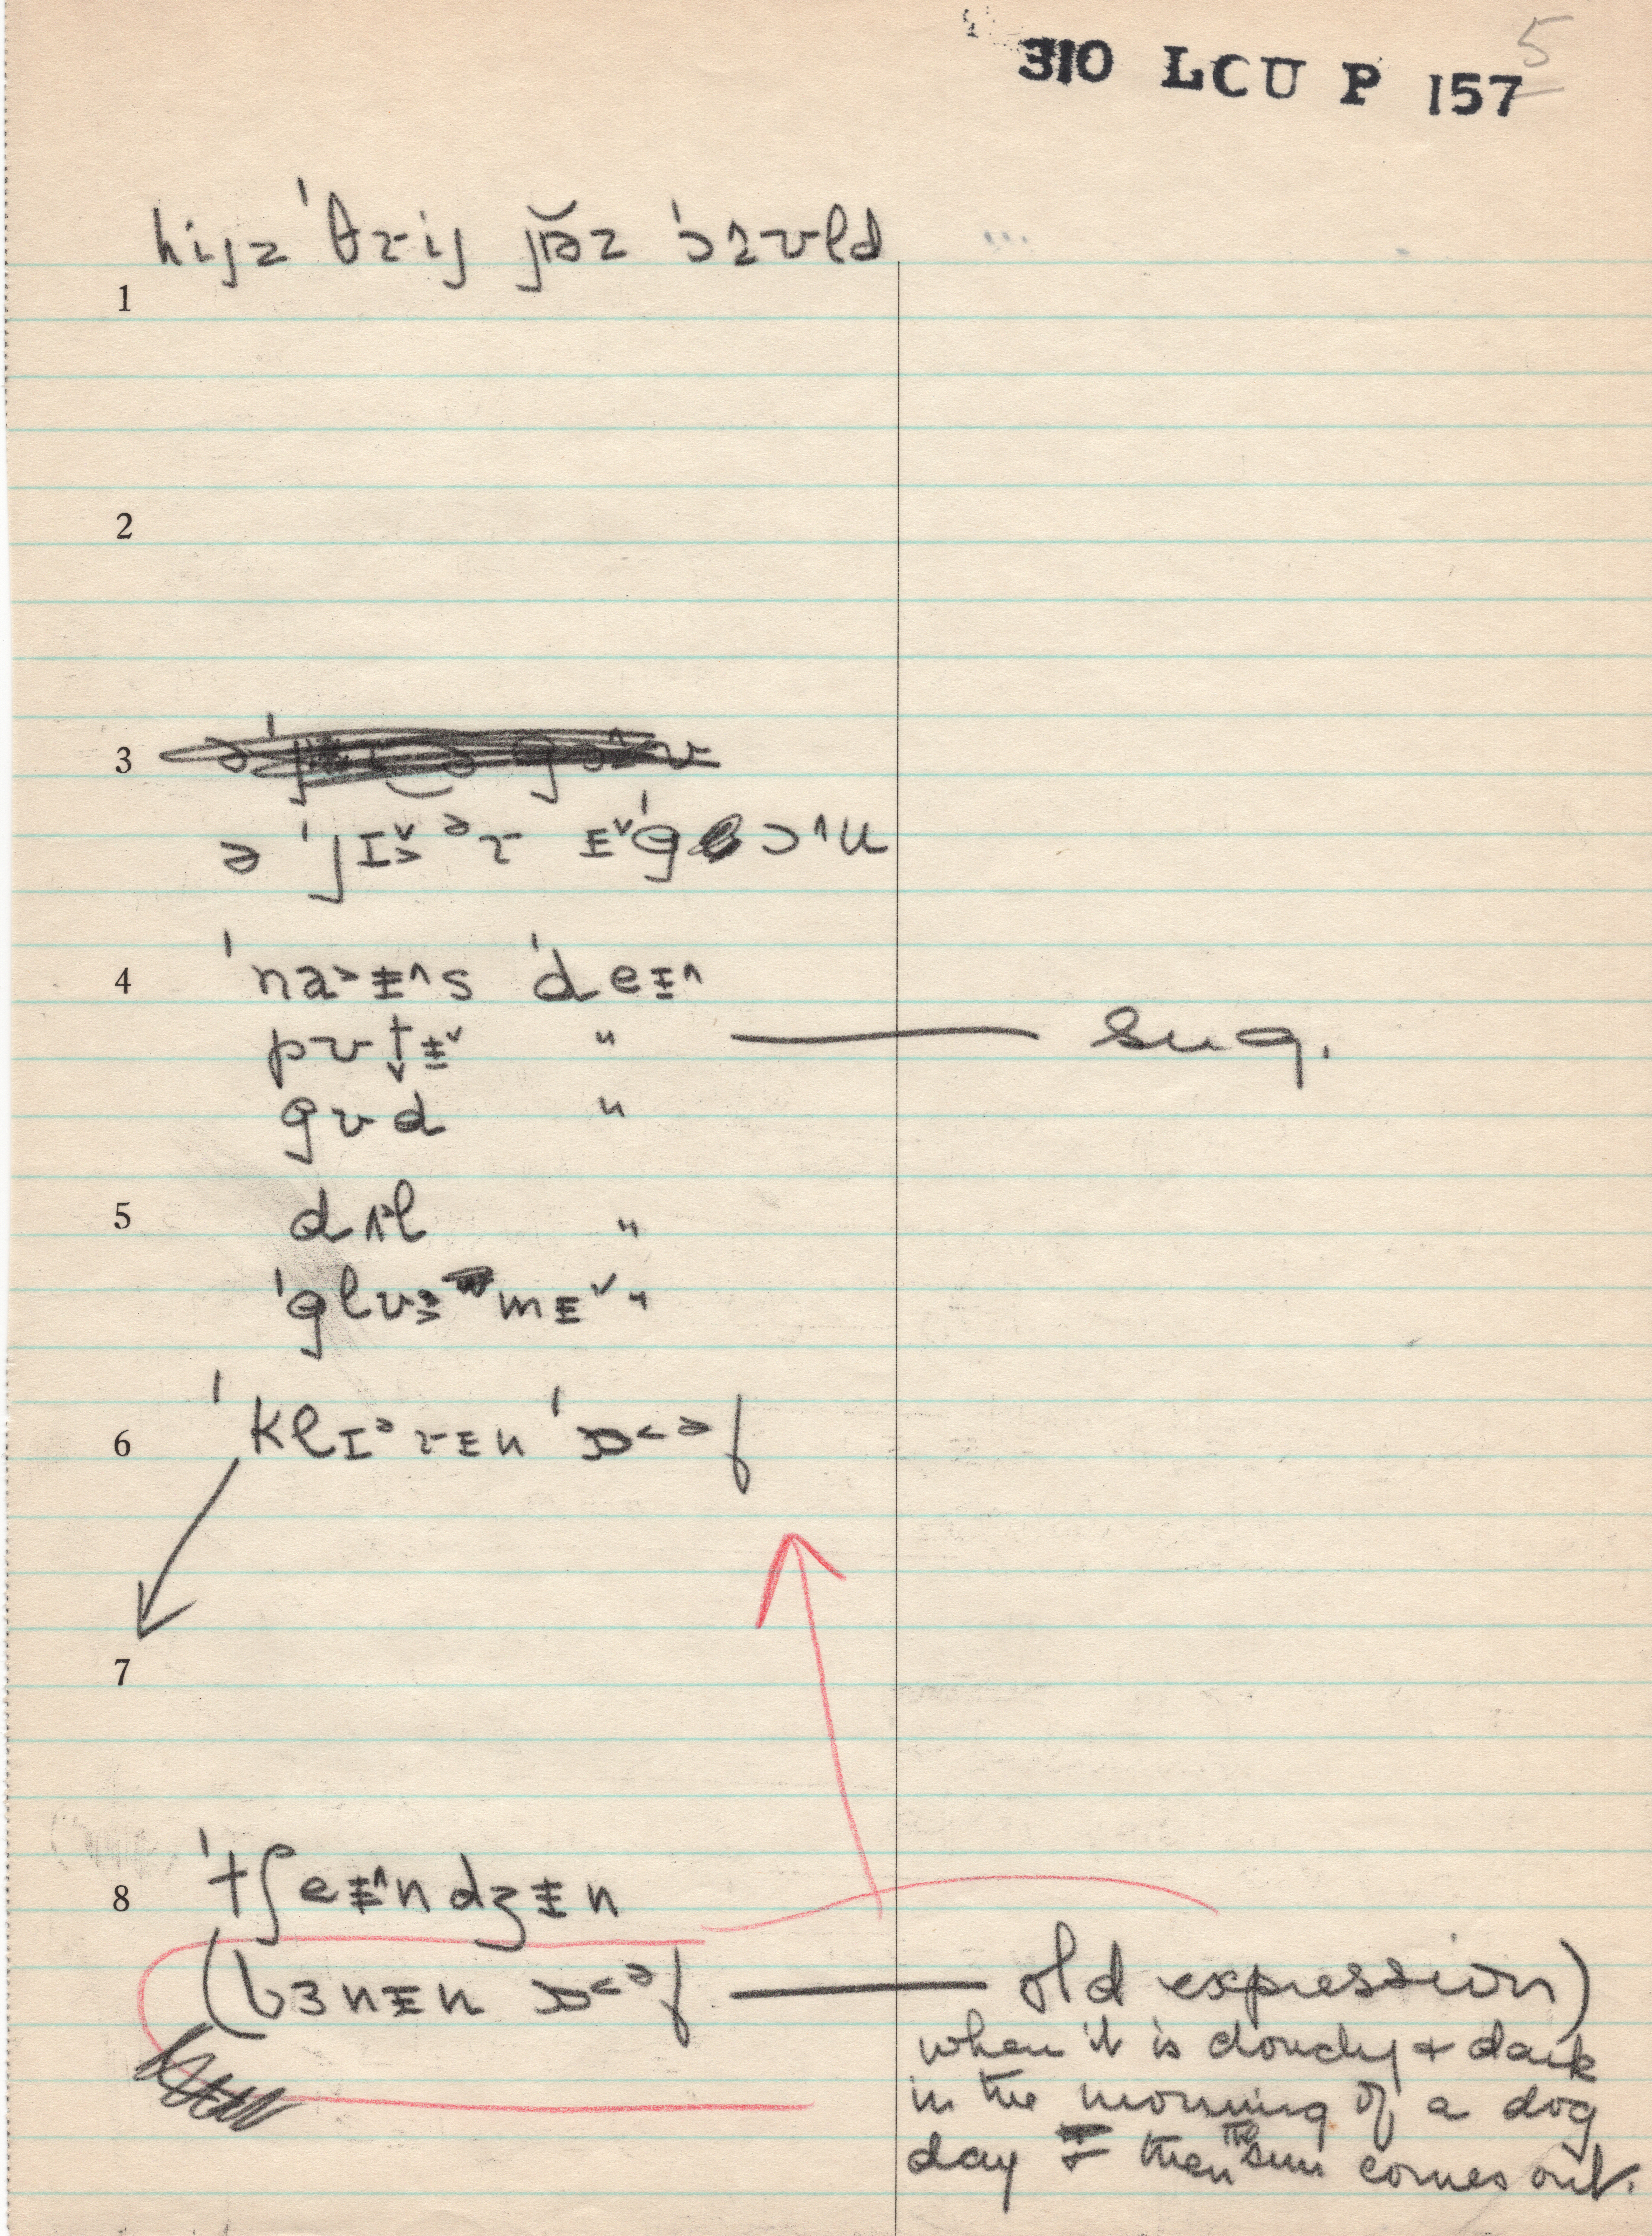 310 LCU P 157
5
hijz ˈθrij jɪ̆əz ˈɔʌʊld
1
2
3
ə ˈjɪ˅˃ ᵊr ɪ˅ˈg ɔ˄u
4 ˈna˃ɨ˄s ˈdeɪ˄
pʊt̬ɨ˅ " — sug.
gʊd "
5 dʌl "
ˈglu mɪ˅ "
6 ˈklɪᵊrɪn ˈɔ˂ᵊf
7
8 ˈtʃeɪ˄ndʒɨn
(bɜnɪn ɔ˂ᵊf — old expression)
when it is cloudy + dark
in the morning of a dog
day + then the sun comes out.